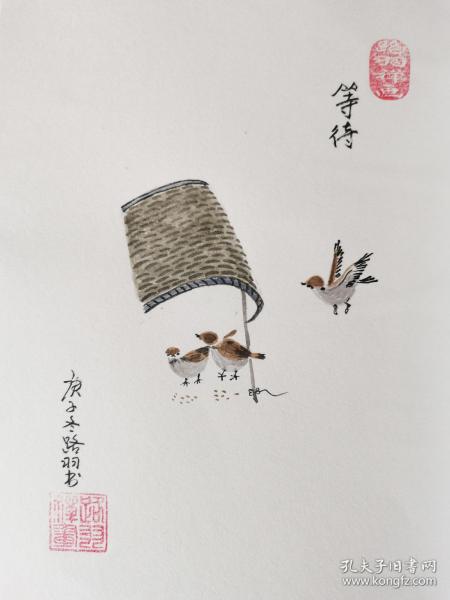 等待
庚子冬路羽书
路羽禅画
孔夫子旧书网
www.kongfz.com